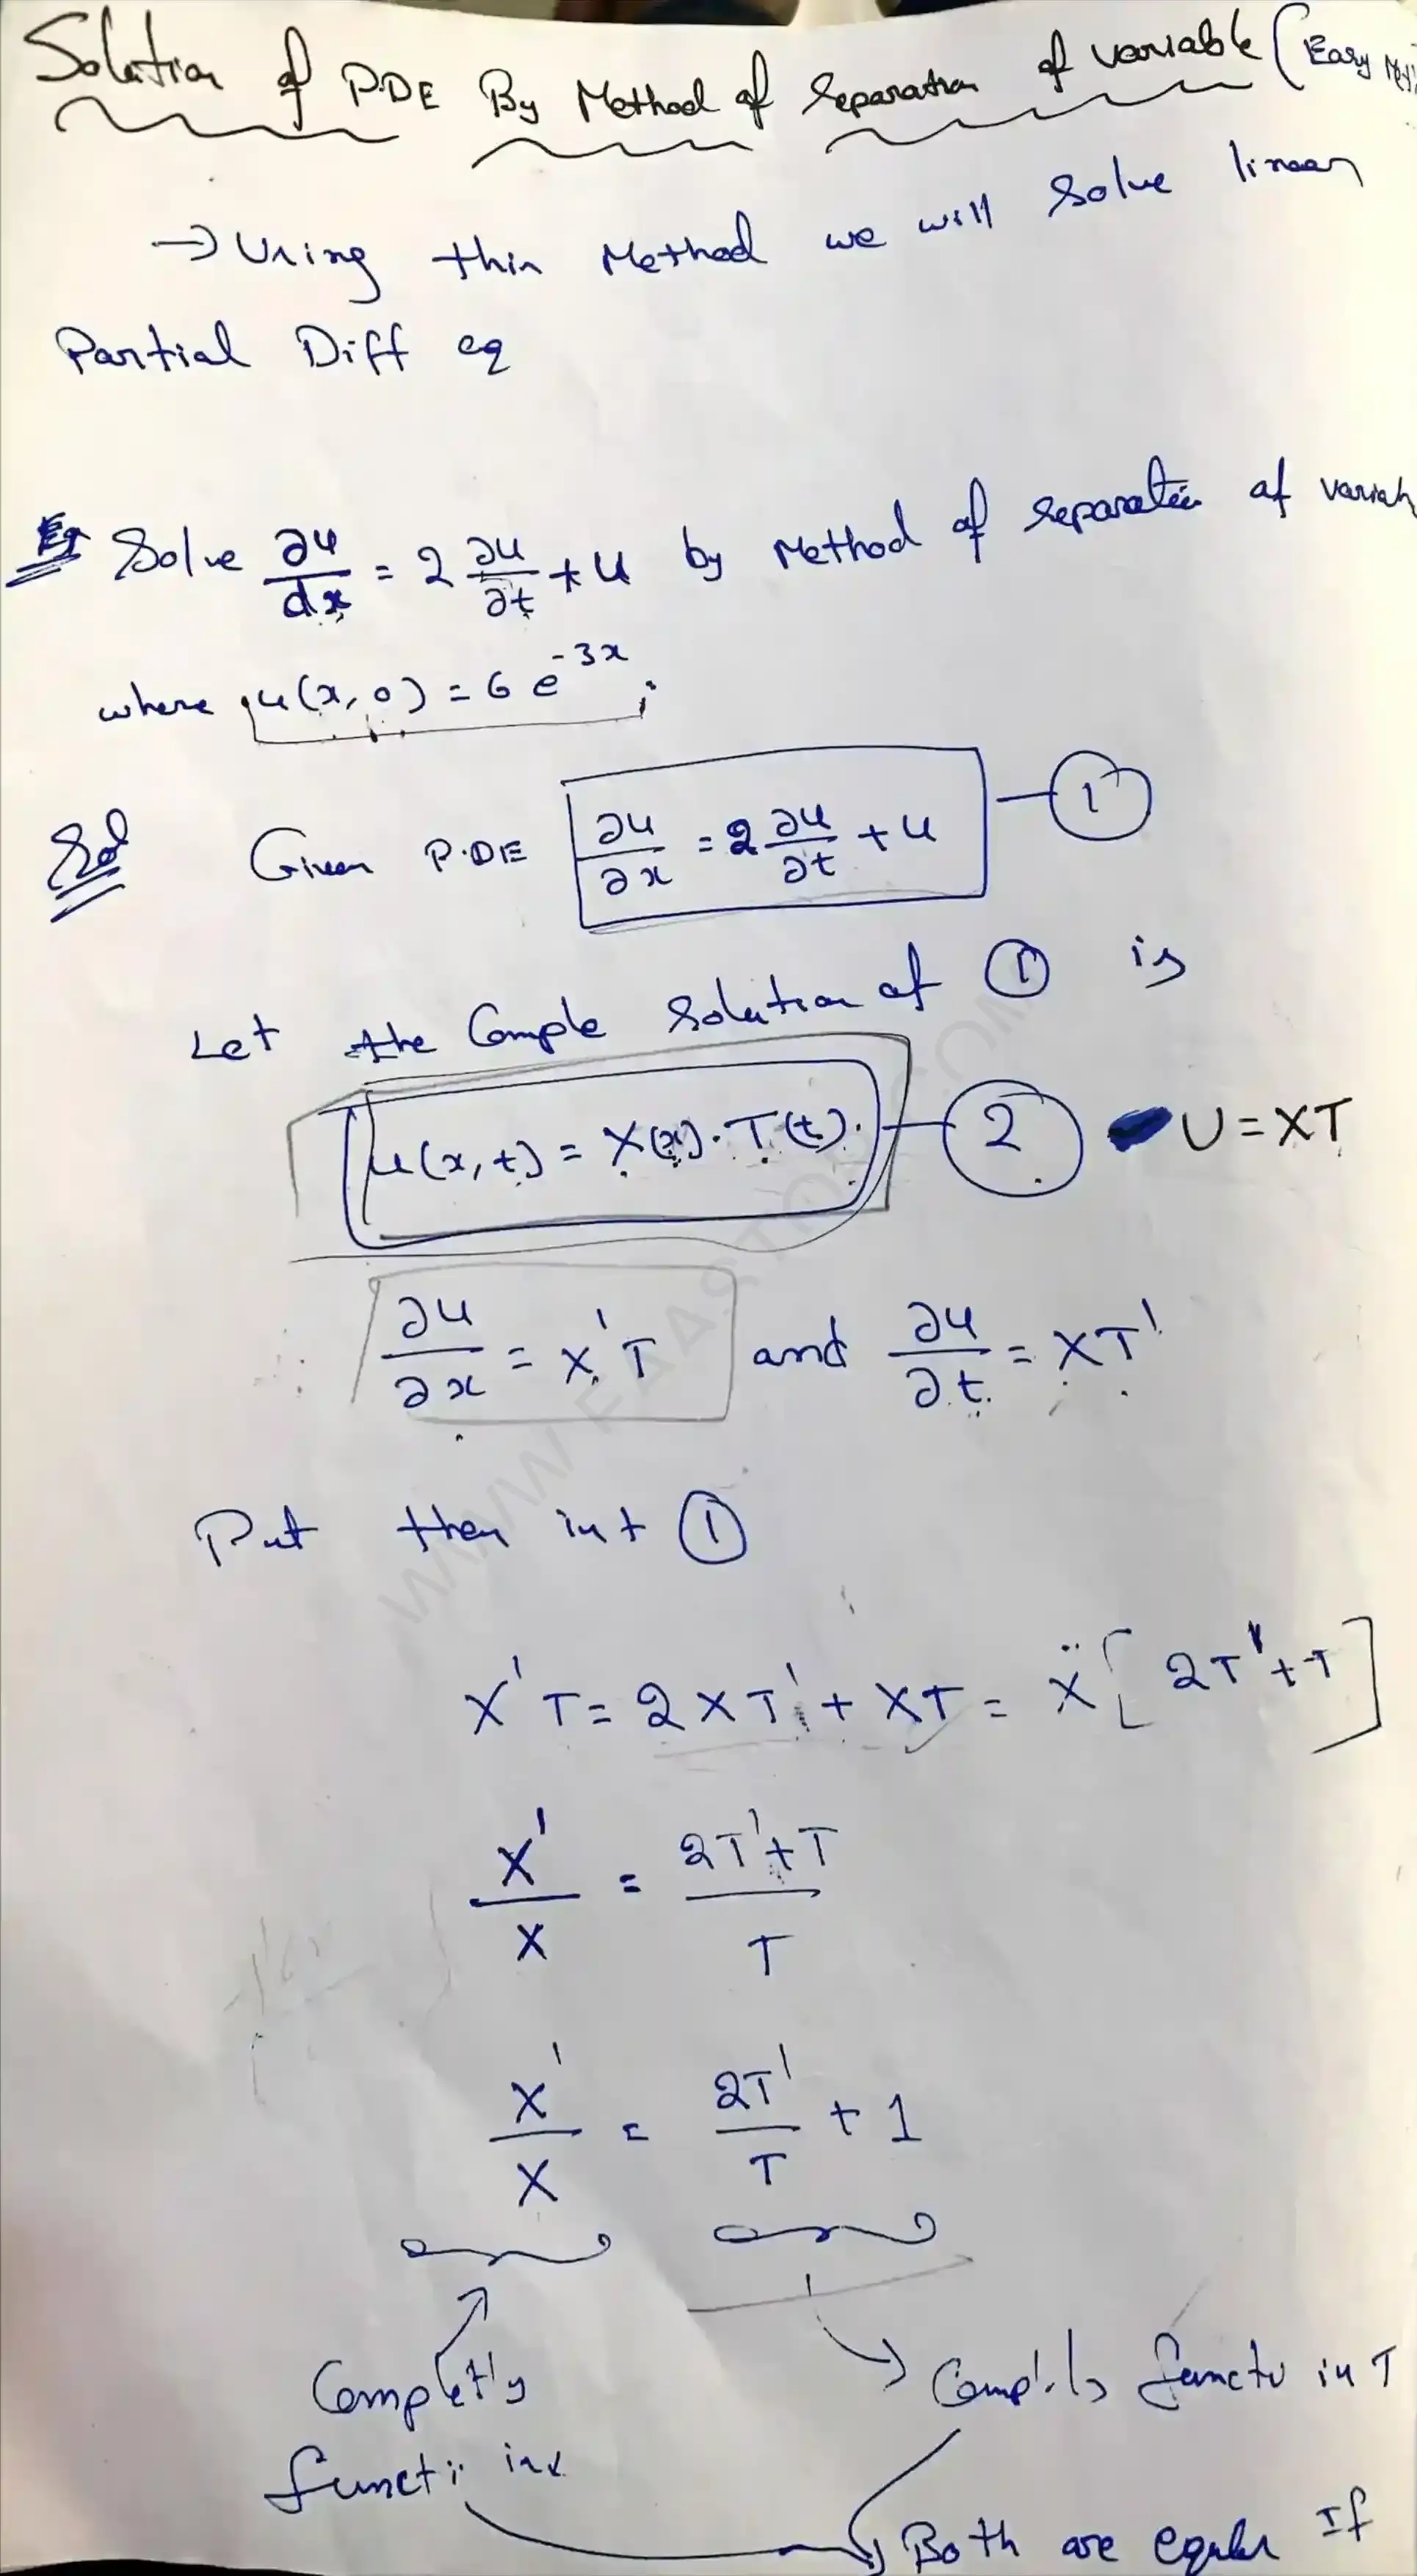 Solution of P.DE By Method of Separation of variable (Easy
→ Using this Method we will solve linear
Partial Diff eq
Solve ∂u/dx = 2 ∂u/∂t + u by Method of separation of variab
where u(x, 0) = 6 e^-3x
Sol Given P.DE ∂u/∂x = 2 ∂u/∂t + u — 1
Let the Comple Solution of 1 is
u(x, t) = X(x) · T(t) — 2 U = XT
∂u/∂x = X'T and ∂u/∂t = XT'
Put then int 1
X'T = 2XT' + XT = X[2T' + T]
X'/X = 2T' + T/T
X'/X = 2T'/T + 1
Completly
in T
Both are If
WWW.FAASTOP.COM